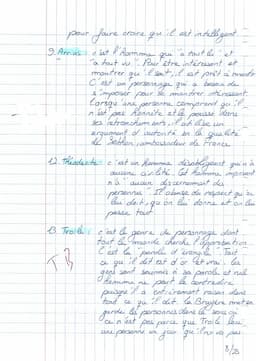 pour faire croire qu'il est intelligent.
9. Arrias : c'est l'homme qui "a tout lu" et
"a tout vu". Pour être intéressant et
montrer qu'il sait, il est prêt à mentir
C'est un personnage qui a besoin de
s'imposer pour se montrer intéressant.
Lorsqu'une personne comprend qu'il
n'est pas honnête et le pousse dans
ses retranchements, il utilise un
argument d'autorité en la qualité
de Sethon, ambassadeur de France
12. Théodecte : c'est un homme désobligeant qui n'a
aucune civilité. Cet homme imposant
n'a aucun discernement des
personnes. Il abuse du respect qu'on
lui doit, qu'on lui donne et on lui
passe tout
13. Troïle : c'est le genre de personnage dont
tout le monde cherche l'approbation
C'est la parole d'évangile. Tout
ce qu'il dit est d'or et vrai. Les
gens sont soumis à sa parole et nul
homme ne peut le contredire
puisqu'il a entièrement raison dans
tout ce qu'il dit. La Bruyère met en
garde les personnes dans le sens où
ce n'est pas parce que Troïle
une personne un jour qu'il va pas
TB
8/23